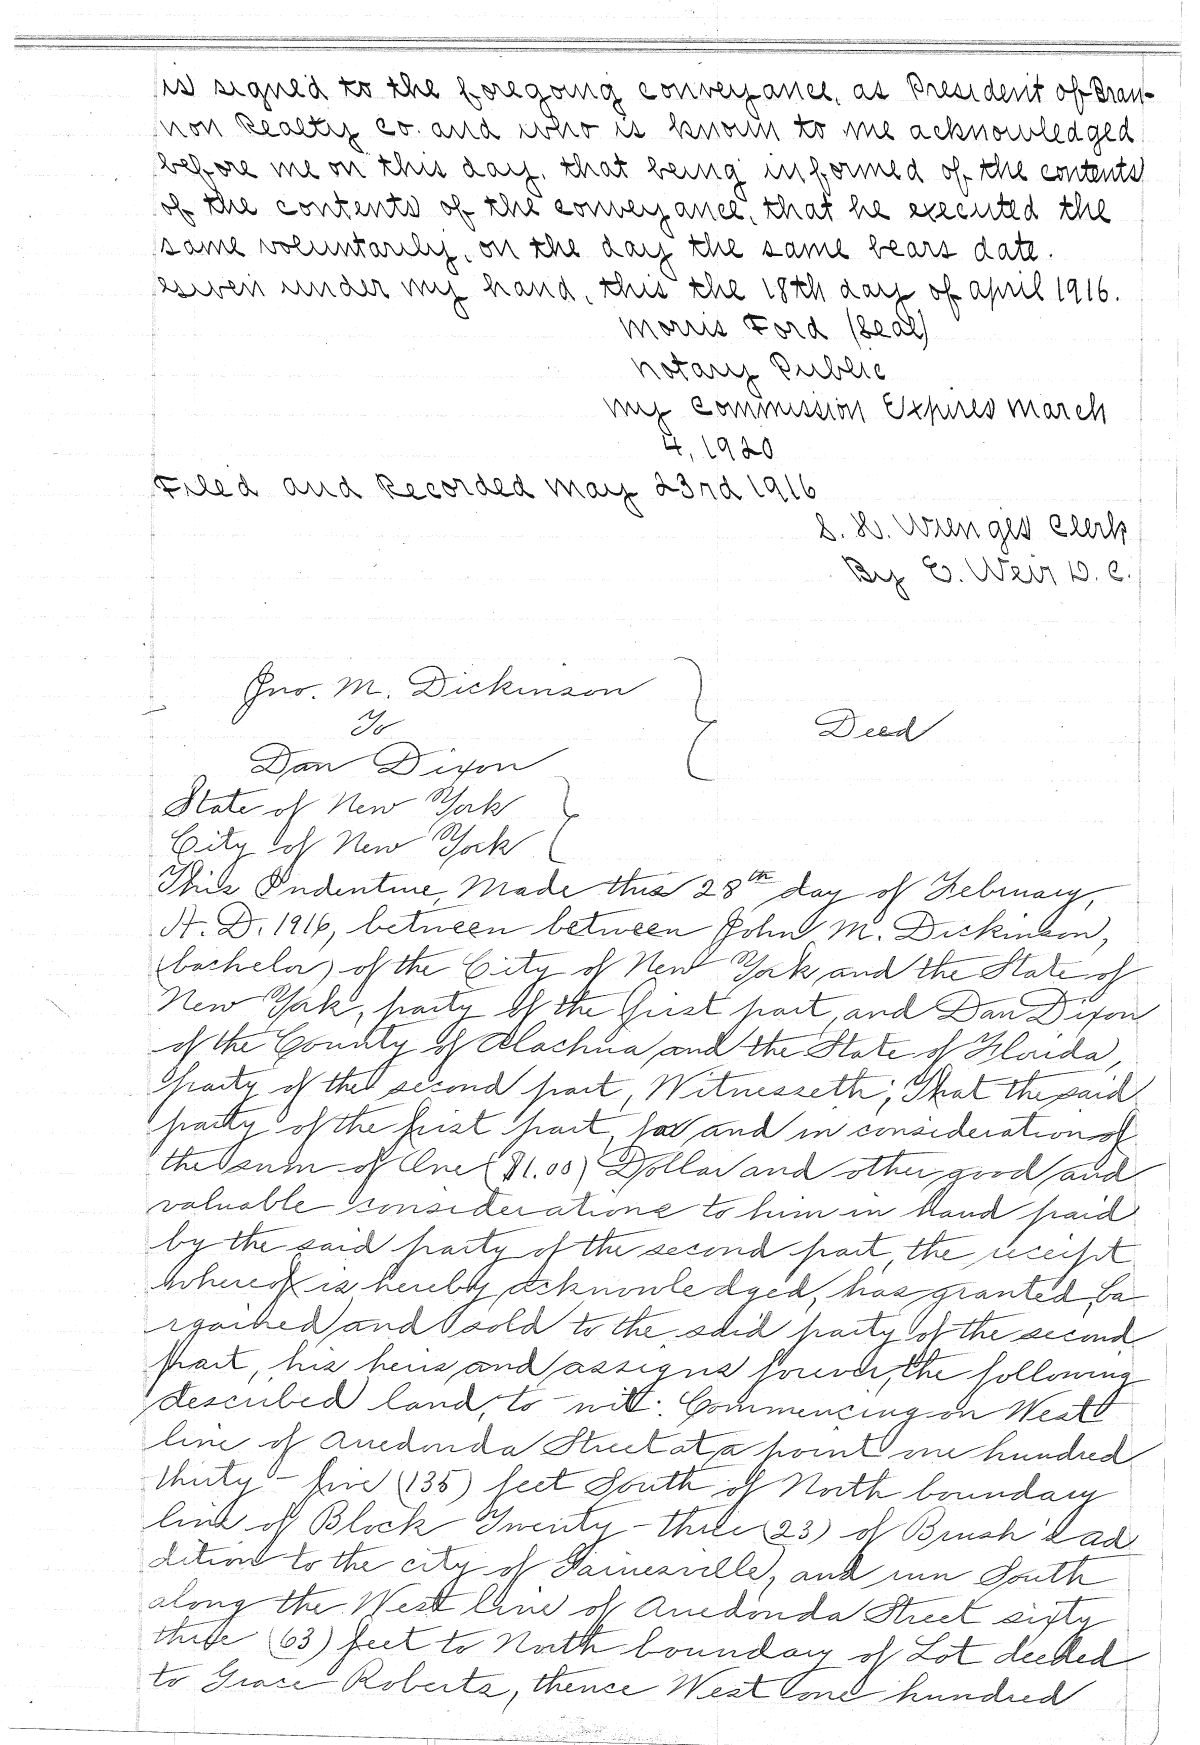 is signed to the foregoing conveyance, as President of Bran-
non Realty Co. and who is known to me acknowledged
before me on this day, that being informed of the contents
of the contents of the conveyance, that he executed the
same voluntarily, on the day the same bears date.
Given under my hand, this the 18th day of april 1916.
Morris Ford (Seal)
Notary Public
My Commission Expires March
4, 1920
Filed and Recorded May 23rd 1916
S. H. Wienges Clerk
By E. Weir D. C.
Jno. M. Dickinson
To
Deed
Dan Dixon
State of New York
City of New York
This Indenture, Made this 28th day of February,
A. D. 1916, between between John M. Dickinson,
(bachelor) of the City of New York and the State of
New York, party of the first part, and Dan Dixon
of the County of Alachua and the State of Florida,
party of the second part, Witnesseth; That the said
party of the first part, for and in consideration of
the sum of One ($1.00) Dollar and other good and
valuable considerations to him in hand paid
by the said party of the second part, the receipt
whereof is hereby acknowledged, has granted, ba
rgained and sold to the said party of the second
part, his heirs and assigns forever, the following
described land, to - wit: Commencing on West
line of Arredonda Street at a point one hundred
thirty - five (135) feet South of North boundary
line of Block Twenty - three (23) of Brush's ad
dition to the city of Gainesville, and run South
along the West line of Arredonda Street sixty
three (63) feet to North boundary of Lot deeded
to Grace Roberts, thence West one hundred